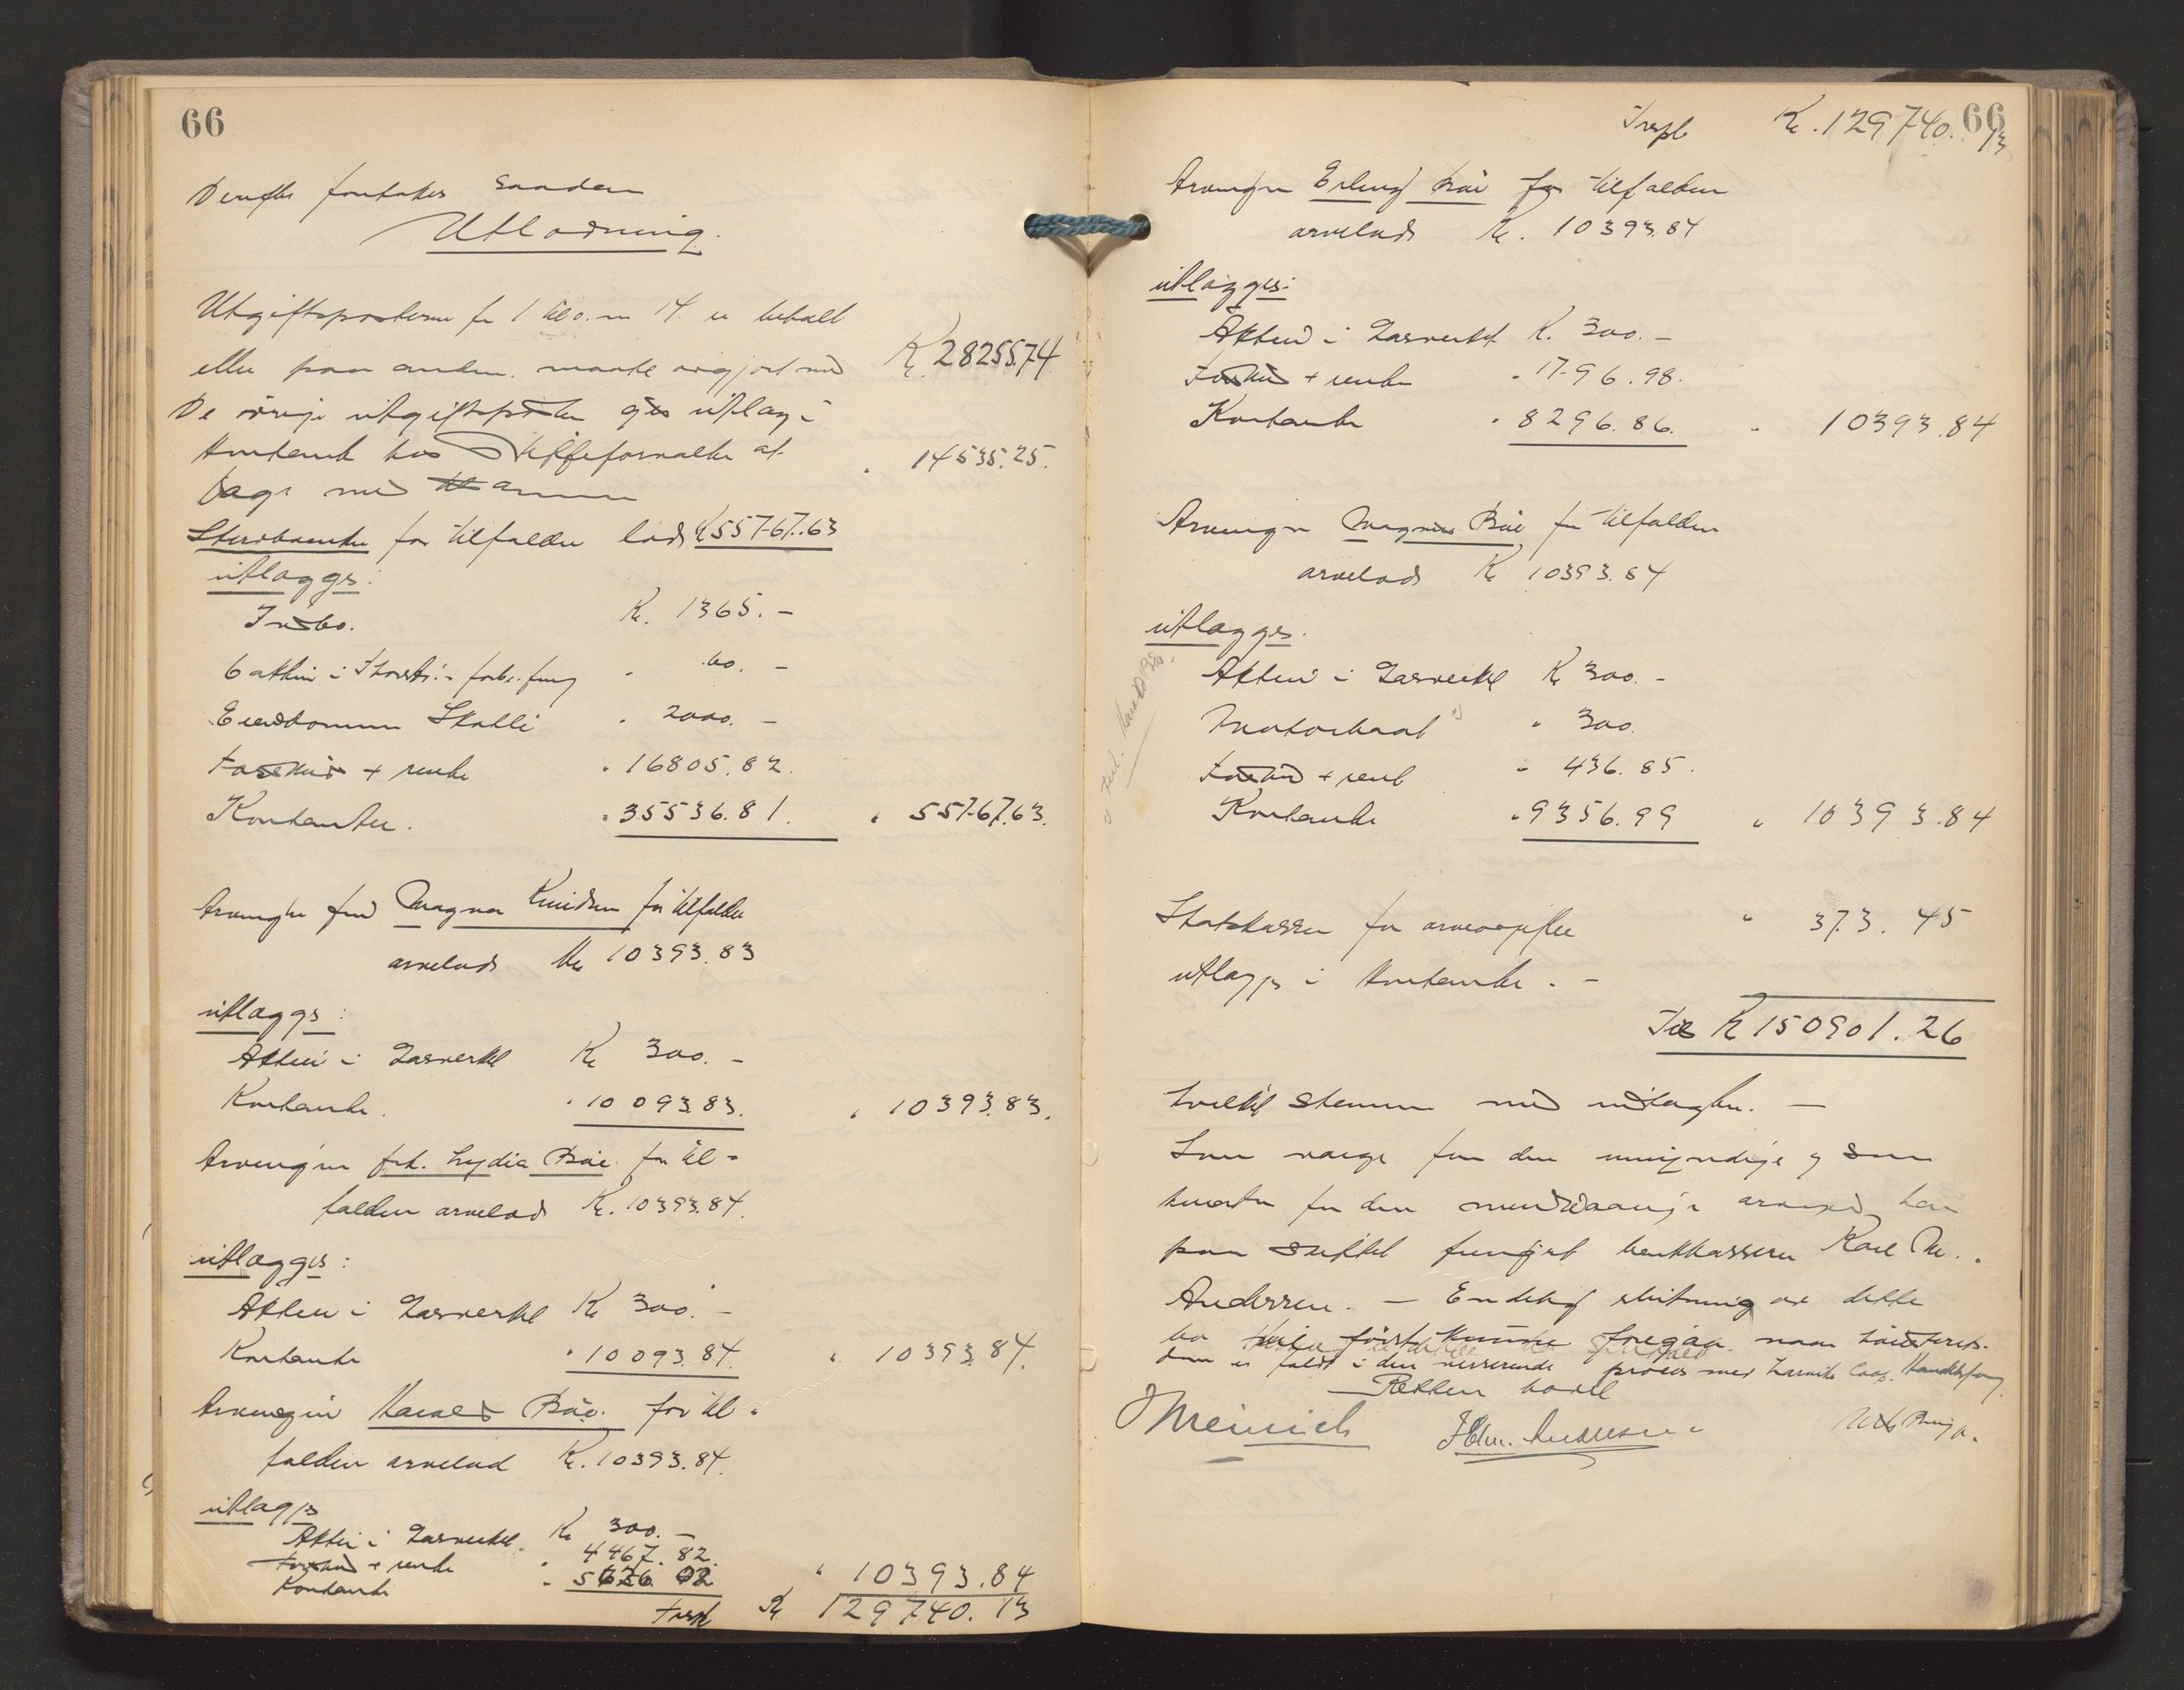 66
Derefter foretokes saadan
Utlodning.
Utgiftsposterne fr 1 til o. m 14 er betalt
eller paa anden maate avgjort med Kr. 28255.74
De övrige utgiftsposter gis utlæg i
kontant hos Skifteforvalter at
dage med " 14535.25.
Sterboenke for tilfalden lod Kr 55767.63
utlægges:
Indbo. Kr. 1365.-
6 aktier i forbr. foren " 60.-
Eiendommen Skolli " 2000.-
Forskud + rente " 16805.82.
Kontanter. " 35536.81. " 55767.63.
Arvingen fru Magna Knudsen for tilfalden
arvelod Kr 10393.83
utlægges:
Aktier i Gasverket Kr 300.-
Kontanter. " 10093.83. " 10393.83.
Arvingen frk. Lydia Böe for til-
falden arvelod Kr. 10393.84.
utlægges:
Aktier i Gasverket Kr 300.-
Kontanter " 10093.84. " 10393.84.
Arvingen Harald Böe for til-
falden arvelod Kr. 10393.84.
utlægges
Aktier i Gasverket. Kr 300.-
Forskud + rente " 4467.82.
Kontanter " 5626.02 " 10393.84
Transp Kr 129740.13
66
Transp Kr. 129740.13
Arvingen Erling Böe for tilfalden
arvelod Kr. 10393.84
utlægges:
Aktier i Gasverket Kr. 300.-
Forskud + rente " 1796.98.
Kontanter " 8296.86. " 10393.84
Arvingen Magnus Böe for tilfalden
arvelod Kr 10393.84
utlægges.
Aktier i Gasverket Kr 300.-
Motorbaat " 300.
Forskud + rente " 436.85.
Kontanter " 9356.99 " 10393.84
Harald Böe.
Statskassen for arveavgifter " 373.45
utlægges i kontanter.-
Tils Kr 150901.26
hvilket stemmer med indtægten.-
Som værge for den umyndige og som
kurator for den mindreaarige arving har
paa skiftet fungert bankkasserer Karl M.
Andersen. - Endelig slutning av dette
bo kunne foregaa naar höiesterets-
dom er faldt i den verserende proces med Larvik Coop. Handelsforen.
Retten hævet
Meinich
Andersen